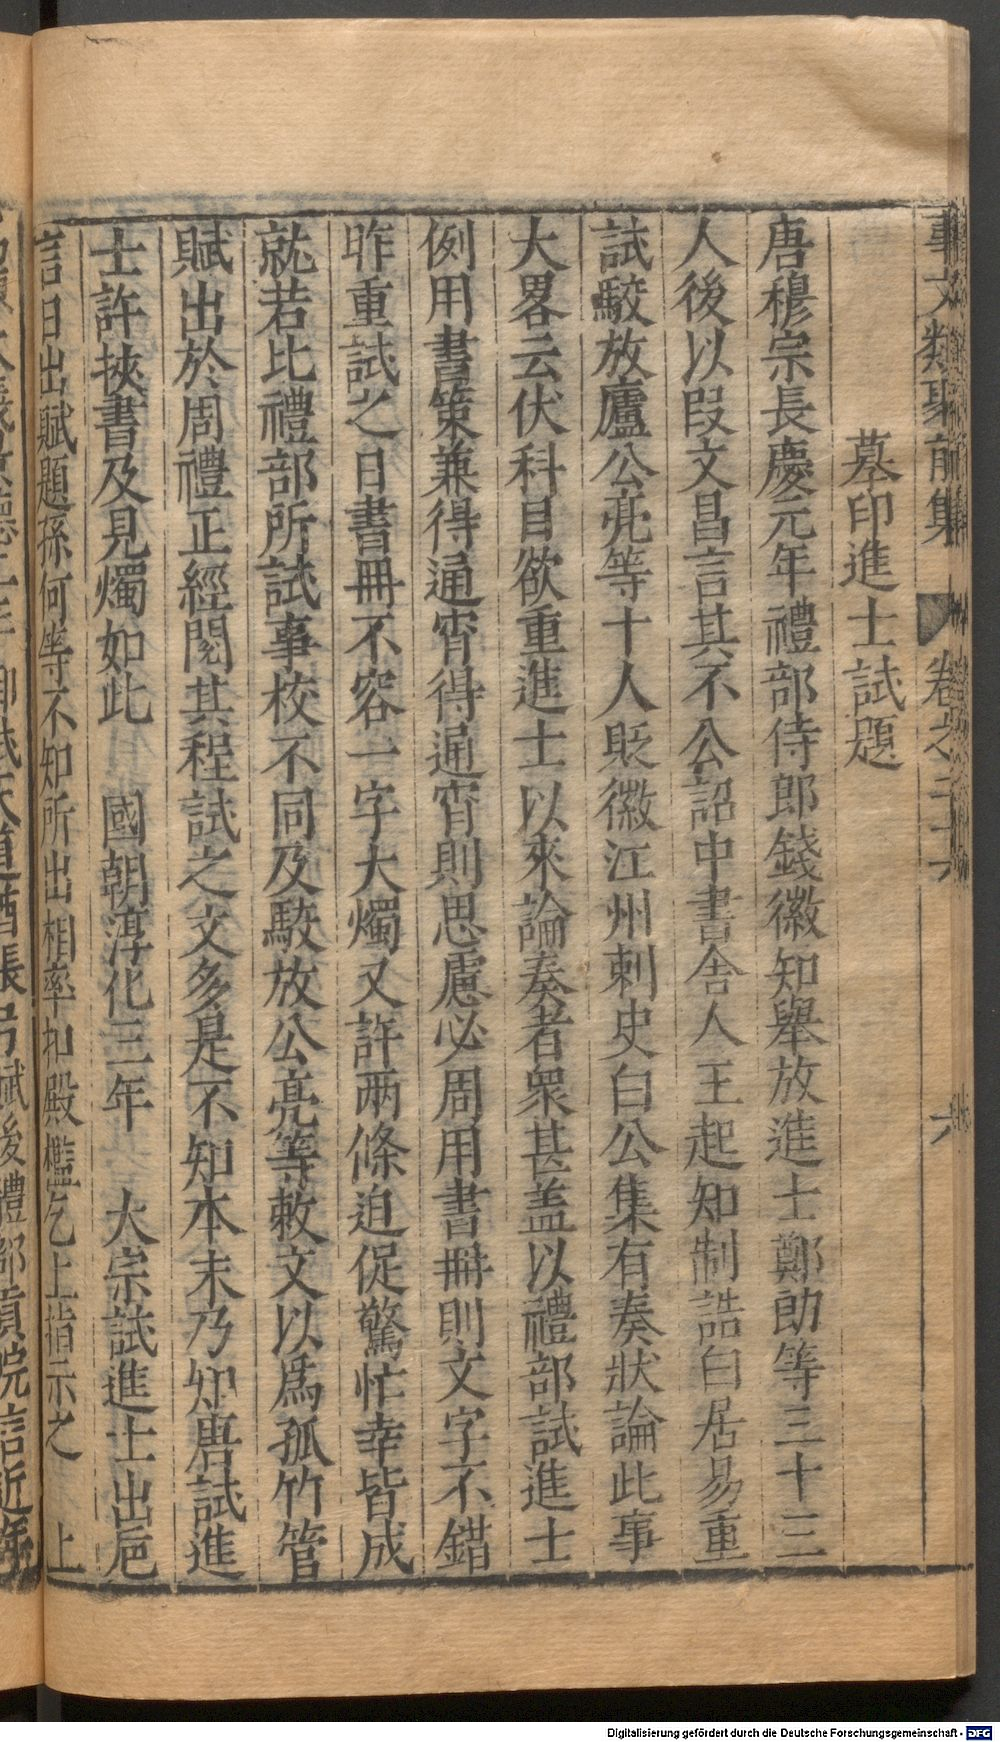 事文類聚前集 卷之二十六 六
墓印進士試題
唐穆宗長慶元年禮部侍郎錢徽知舉放進士鄭朗等三十三
人後以段文昌言其不公詔中書舍人王起知制誥白居易重
試駮放盧公亮等十人貶徽江州刺史白公集有奏狀論此事
大畧云伏科目欲重進士以來論奏者衆甚盖以禮部試進士
例用書策兼得通宵得通宵則思慮必周用書冊則文字不錯
昨重試之日書冊不容一字大燭又許兩條迫促驚忙幸皆成
就若比禮部所試事校不同及駮放公亮等敕文以爲孤竹管
賦出於周禮正經閱其程試之文多是不知本末乃知唐試進
士許挾書及見燭如此 國朝淳化三年 太宗試進士出巵
言日出賦題孫何等不知所出相率扣殿檻乞上指示之 上
Digitalisierung gefördert durch die Deutsche Forschungsgemeinschaft - DFG